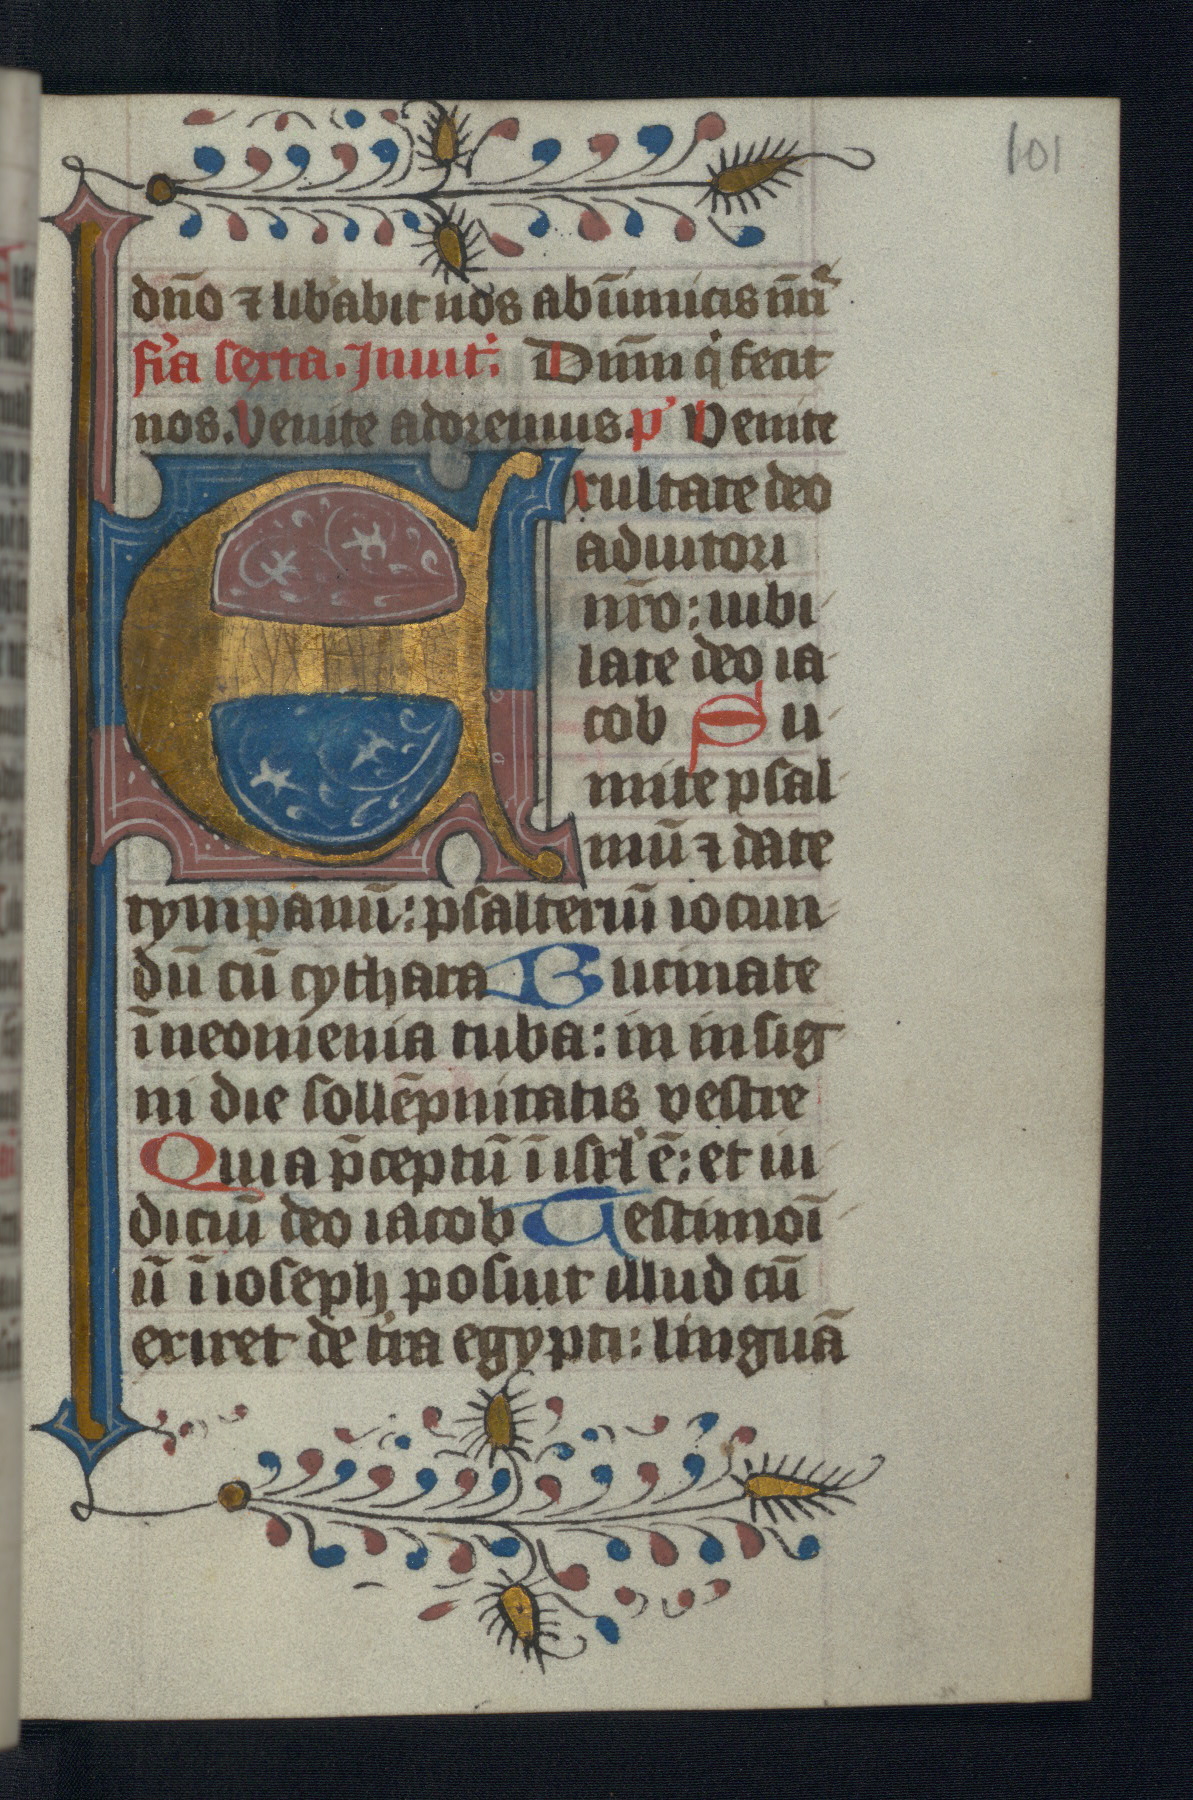 101
dn̄o ⁊ lib'abit nos ab īimicis nr̄i
fi'a sexta. Inuit'. Dnm̄ q̇ fecit
nos. Venite adoremus. p' Venite
Exultate deo
adiutori
nr̄o: iubi
late deo ia
cob Su
mite psal
mū ⁊ date
tympanū: psalteriū iocun
dū cū cythara Bucinate
ī neomenia tuba: in insig
ni die sollēpnitatis vestre
Quia p̄ceptū ī isrl' ē: et iu
diciū deo iacob Testimoī
ū ī ioseph posuit illud cū
exiret de t'ra egypti: linguā